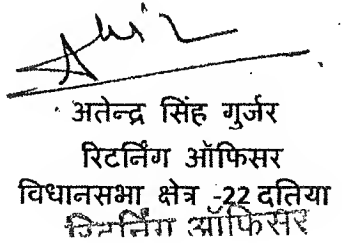 अतेन्द्र सिंह गुर्जर
रिटर्निंग ऑफिसर
विधानसभा क्षेत्र -22 दतिया
रिटर्निंग ऑफिसर